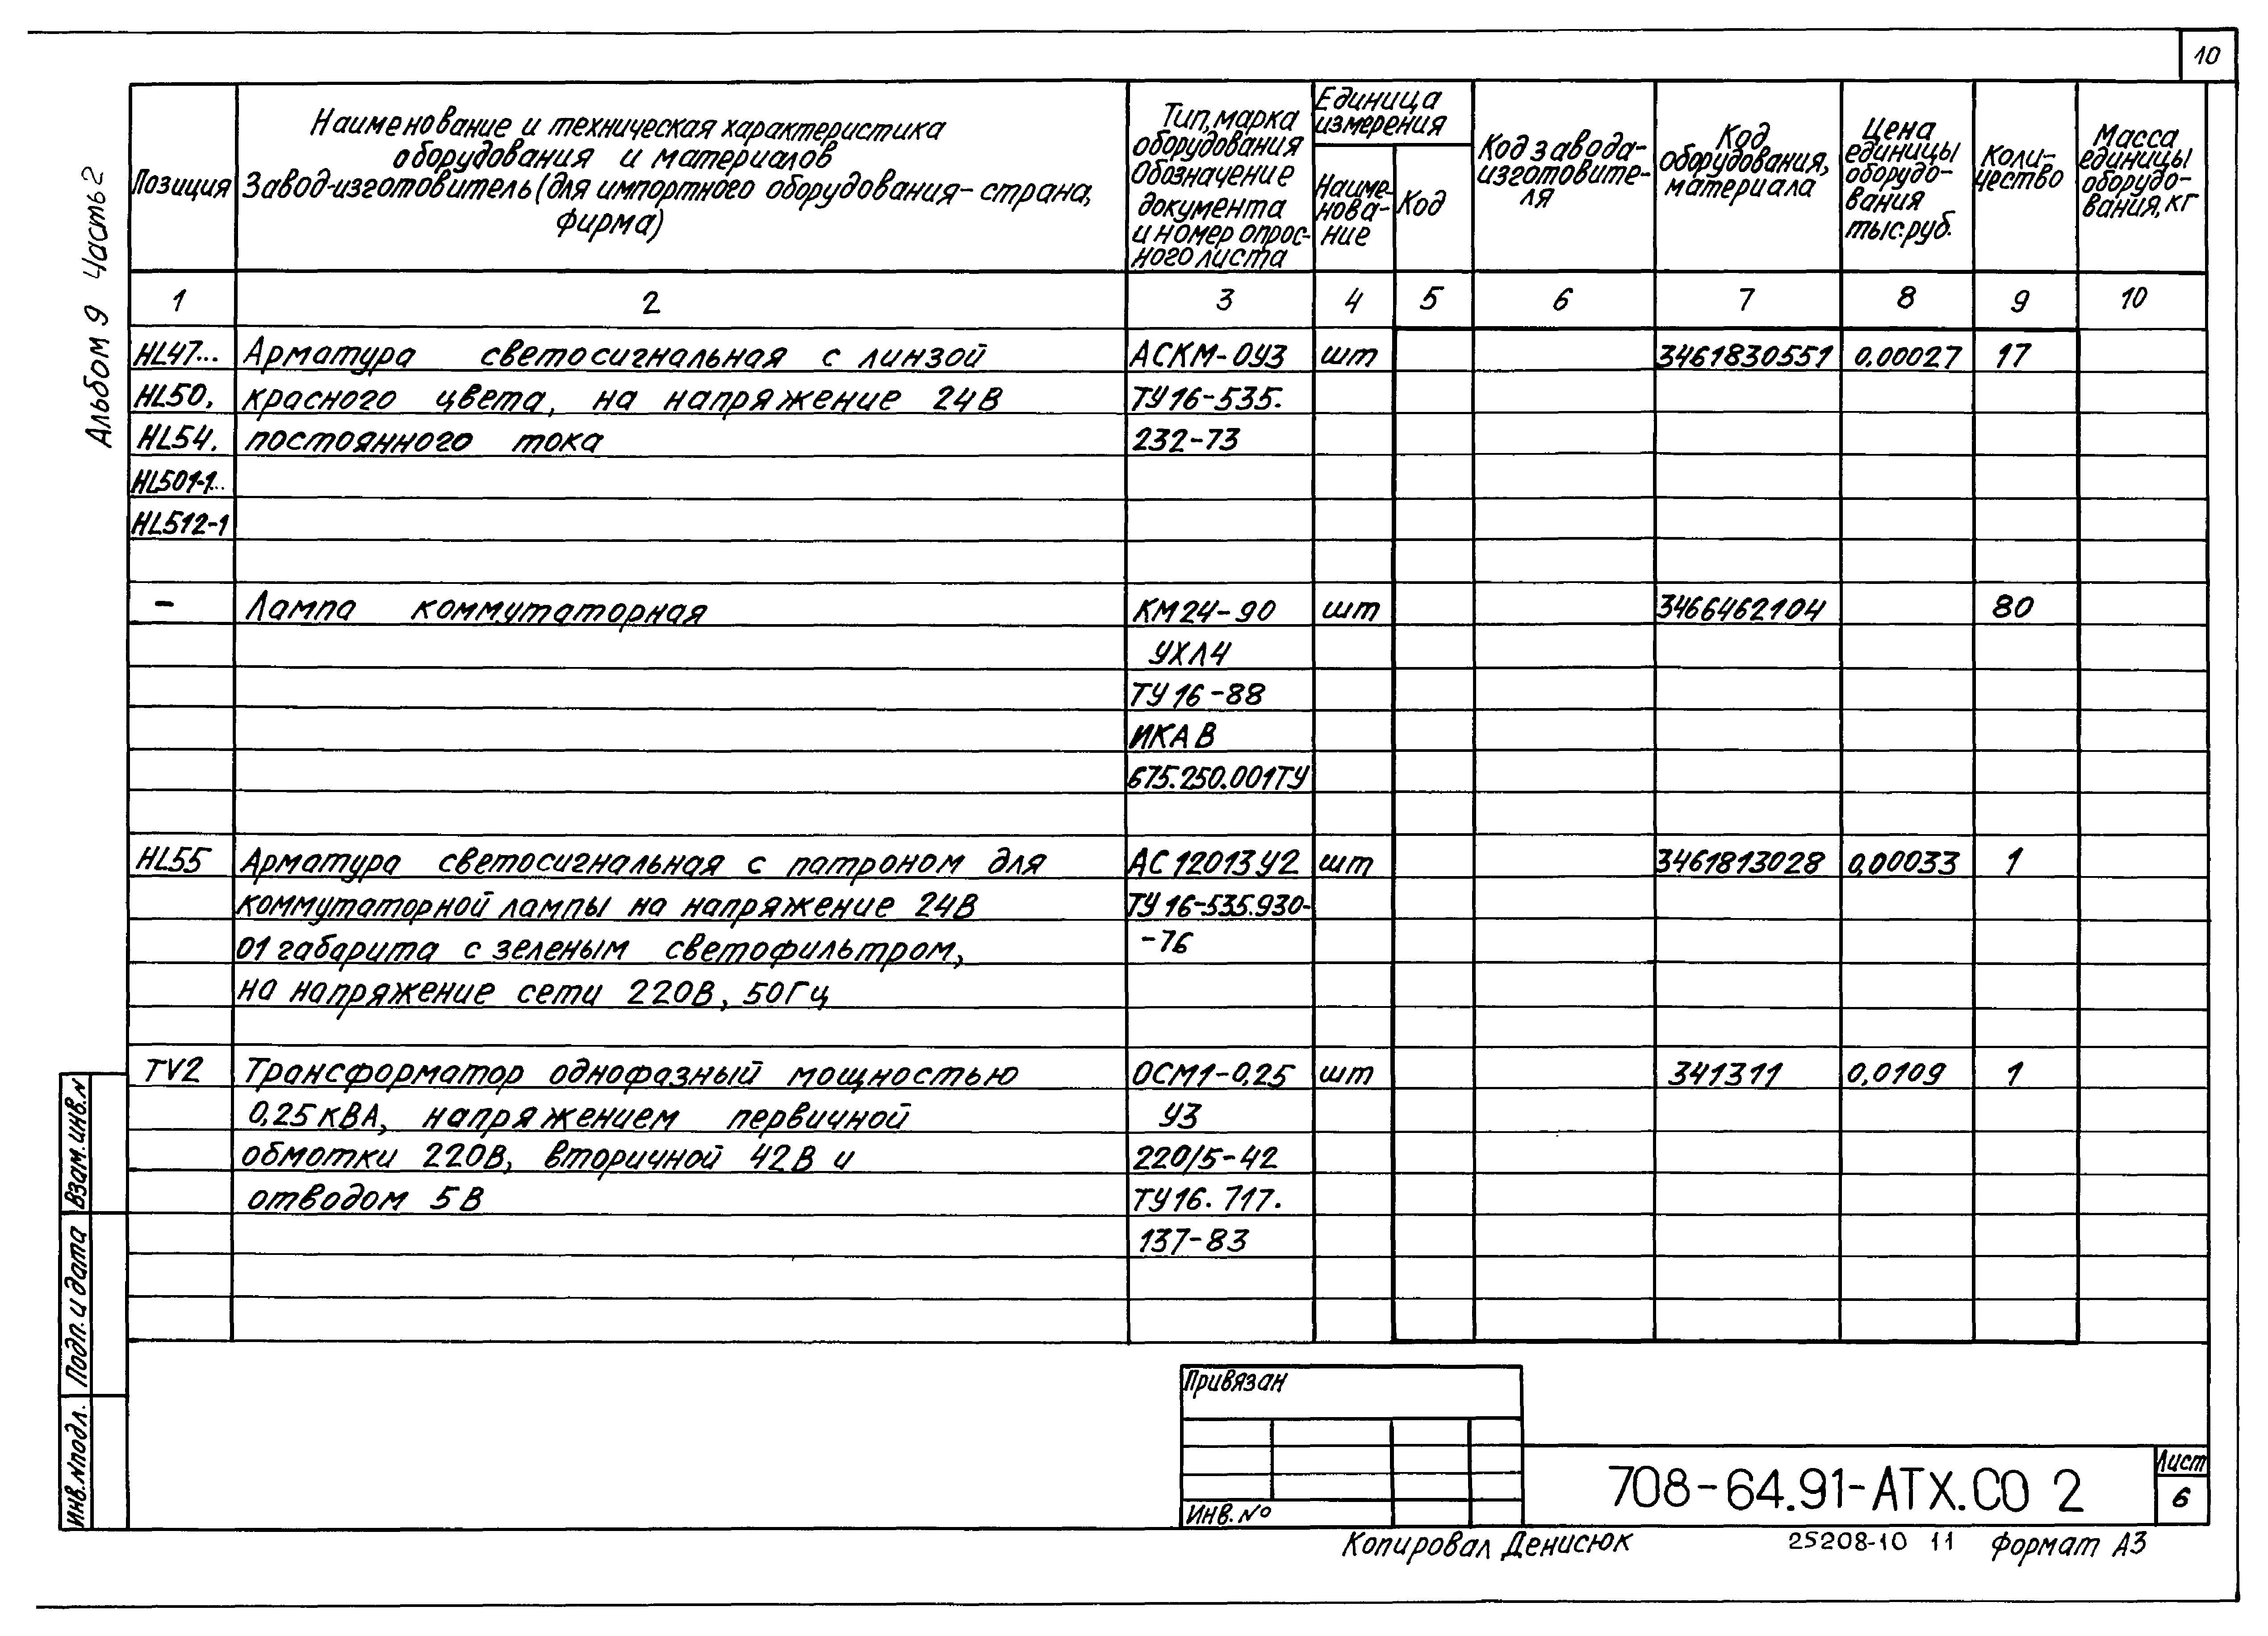 10
Альбом 9 Часть 2
Позиция
Наименование и техническая характеристика
оборудования и материалов
Завод-изготовитель (для импортного оборудования - страна,
фирма)
Тип, марка
оборудования
Обозначение
документа
и номер опрос-
ного листа
Единица
измерения
Наиме-
нова-
ние
Код
Код завода-
изготовите-
ля
Код
оборудования,
материала
Цена
единицы
оборудо-
вания
тыс.руб.
Коли-
чество
Масса
единицы
оборудо-
вания, кг
1 2 3 4 5 6 7 8 9 10
HL47... Арматура светосигнальная с линзой АСКМ-0У3 шт 3461830551 0,00027 17
HL50, красного цвета, на напряжение 24В ТУ16-535.
HL54, постоянного тока 232-73
HL501-1...
HL512-1
- Лампа коммутаторная КМ24-90 шт 3466462104 80
УХЛ4
ТУ16-88
ИКАВ
675.250.001ТУ
HL55 Арматура светосигнальная с патроном для АС12013У2 шт 3461813028 0,00033 1
коммутаторной лампы на напряжение 24В ТУ16-535.930-
01 габарита с зеленым светофильтром, -76
на напряжение сети 220В, 50Гц
TV2 Трансформатор однофазный мощностью ОСМ1-0,25 шт 341311 0,0109 1
0,25 кВА, напряжением первичной У3
обмотки 220В, вторичной 42В и 220/5-42
отводом 5В ТУ16.717.
137-83
Взам. инв.N
Подп. и дата
Инв.Nподл.
Привязан
Инв.Nº
708-64.91-АТХ.СО 2
Лист
6
Копировал Денисюк 25208-10 11 Формат А3